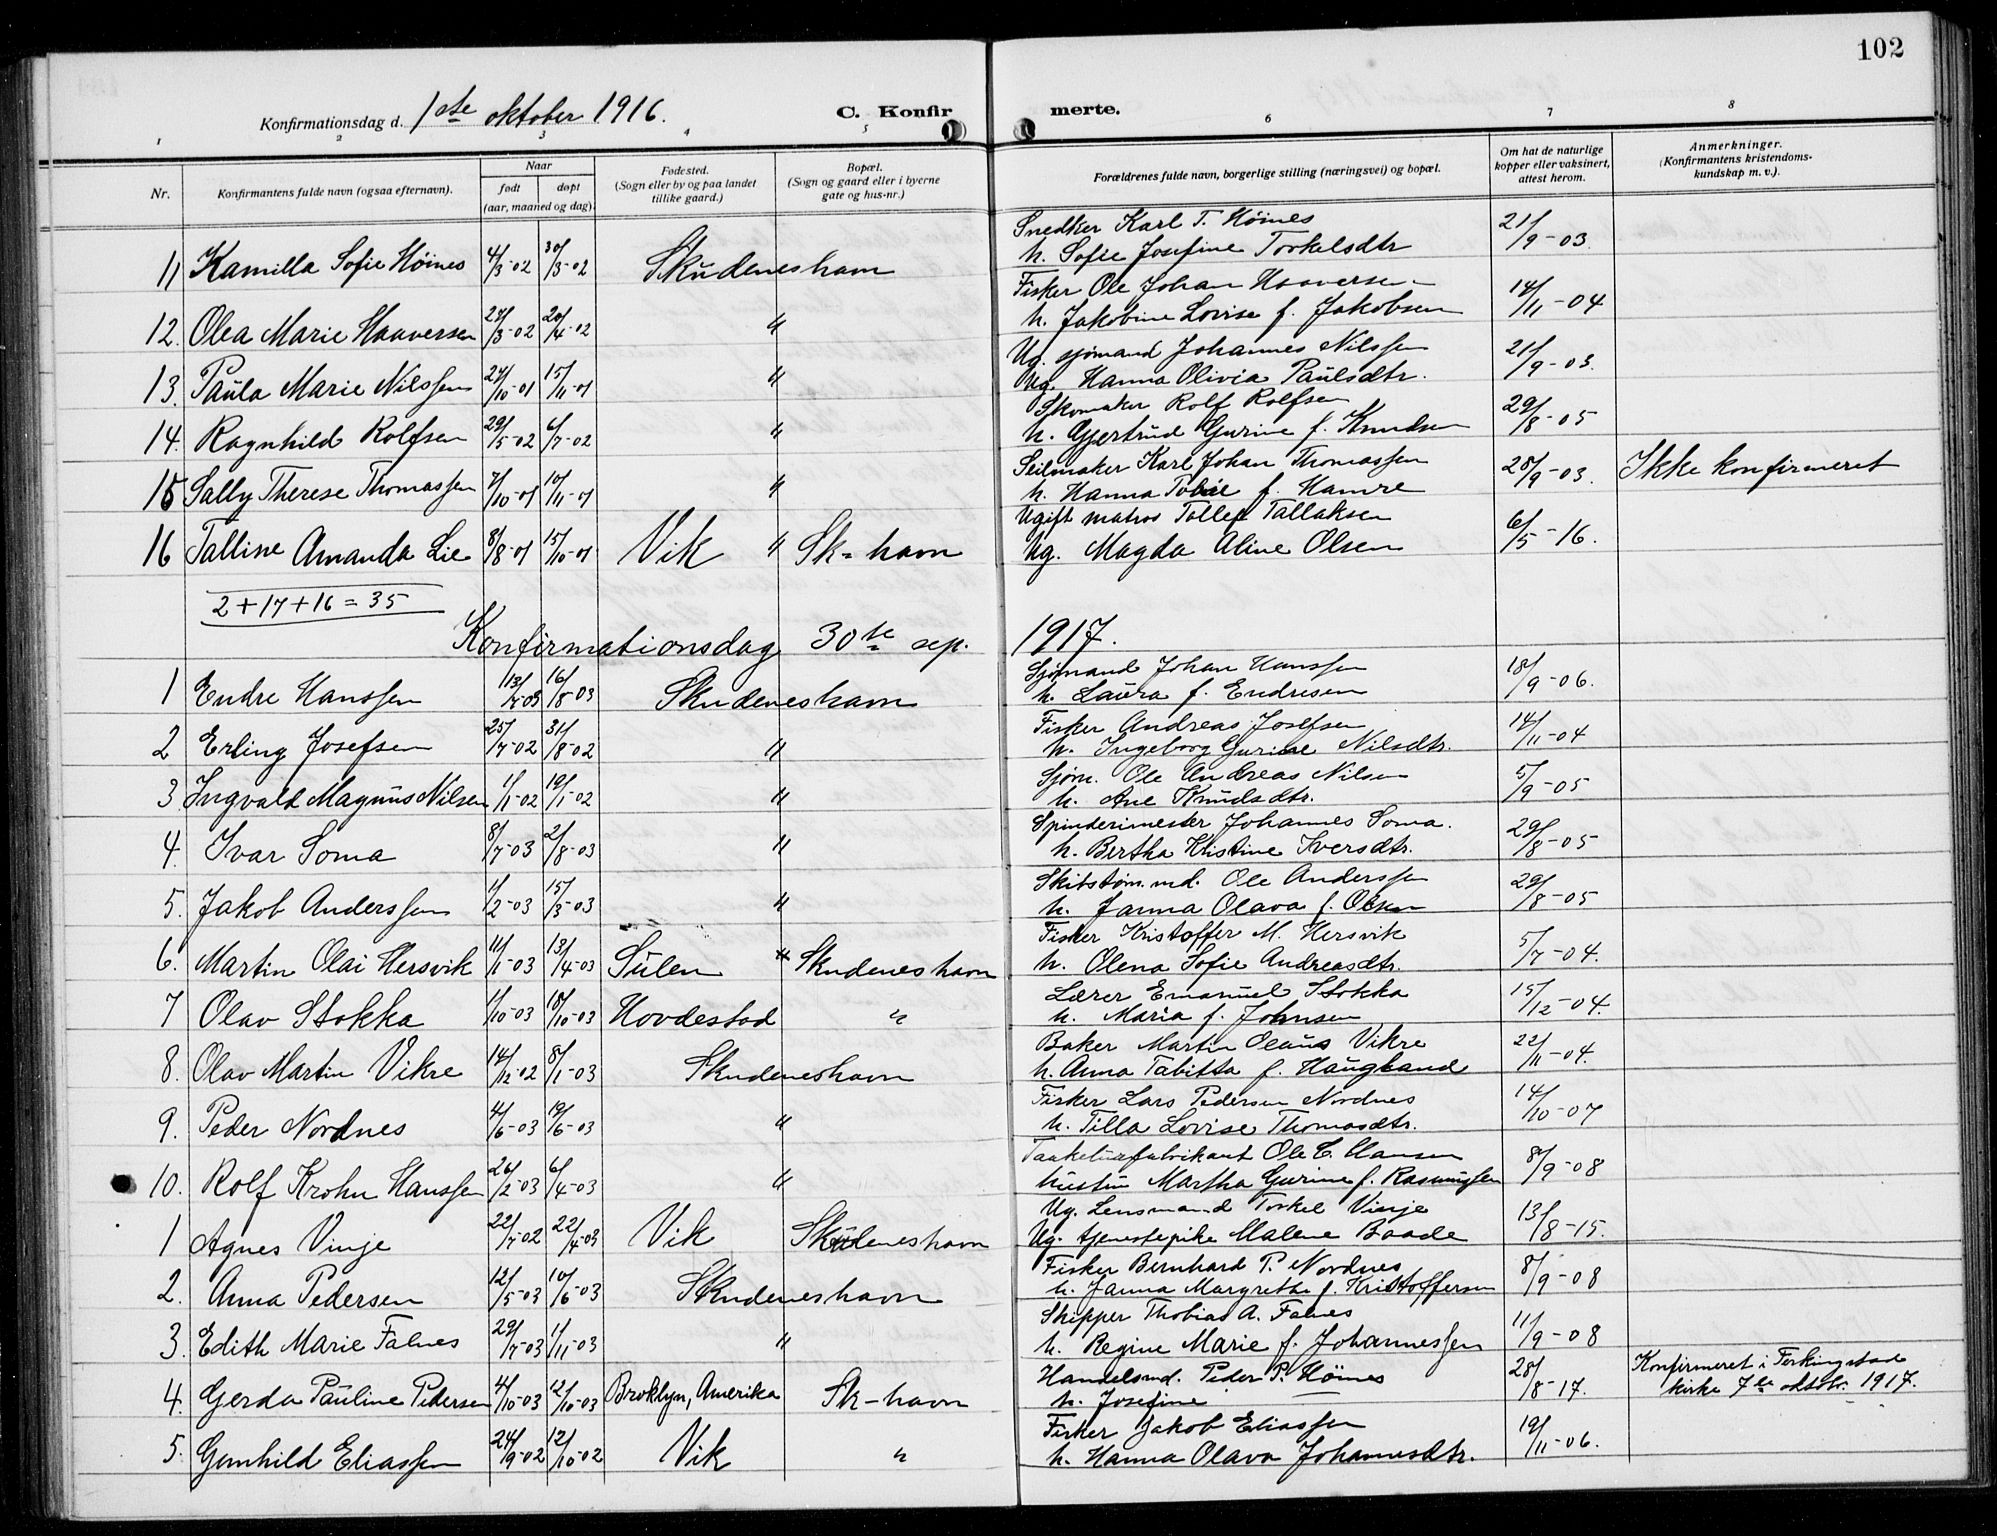 102
Konfirmationsdag d. 1ste oktober 1916.
C. Konfirmerte.
1 2 3 4 5 6 7 8
Nr. | Konfirmantens fulde navn (ogsaa efternavn). | Naar født | døpt (aar, maaned og dag) | Fødested. (Sogn eller by og paa landet tillike gaard.) | Bopæl. (Sogn og gaard eller i byerne gate og hus-nr.) | Forældrenes fulde navn, borgerlige stilling (næringsvei) og bopæl. | Om hat de naturlige kopper eller vaksinert, attest herom. | Anmerkninger. (Konfirmantens kristendoms-kundskap m. v.).
11 Kamilla Sofie Høines 4/3-02 30/3-02 Skudeneshavn Snedker Karl T. Høines h. Sofie Josefine Torkelsdtr 21/9-03.
12. Olea Marie Haaversen 27/3-02 20/4-02 " Fisker Ole Johan Haaversen h. Jakobine Lovise f. Jakobsen 14/11-04
13. Paula Marie Nilssen 27/10-01 15/11-01 " Ug. sjømand Johannes Nilssen Ug. Hanna Olivia Paulsdtr. 21/9-03.
14. Ragnhild Rolfsen 29/5-02 6/7-02 " Skomaker Rolf Rolfsen h. Gjertrud Gurine f. Knudsen 29/8-05
15 Sally Therese Thomassen 7/10-01 10/11-01 " Seilmaker Karl Johan Thomassen h. Hanna Tobie f. Hamre 28/9-03. Ikke konfirmeret
16 Talline Amanda Lie 8/8-01 15/10-01 Vik " Sk-havn Ugift matros Tollef Tallaksen Ug. Magda Aline Olsen 6/5-16.
2+17+16=35
Konfirmationsdag 30te sep. 1917.
1 Endre Hanssen 13/7-03 16/8-03 Skudeneshavn Sjømand Johan Hanssen h. Laura f. Endresen 18/9-06.
2 Erling Josefsen 25/7-02 31/8-02 " Fisker Andreas Josefsen h. Ingeborg Gurine Nilsdtr. 14/11-04
3. Ingvald Magnus Nilsen 1/1-02 19/1-02 " Sjøm. Ole Andreas Nilsen h. Ane Knudsdtr. 5/9-05
4. Ivar Soma 8/7-03 2/8-03 " Spinderimester Johannes Soma. h. Bertha Kristine Iversdtr. 29/8-05
5. Jakob Anderssen 1/2-03 15/3-03 " Skibstøm.md. Ole Anderssen h. Janna Olava f. Olsen 29/8-05
6. Martin Olai Hersvik 11/1-03 13/4-03 Sulen " Skudeneshavn Fisker Kristoffer M. Hersvik h. Olena Sofie Andreasdtr. 5/7-04.
7 Olav Stokka 1/10-03 18/10-03 Hovdestad " Lærer Emanuel Stokka h. Maria f. Johnsen 15/12-04.
8. Olav Martin Vikre 14/12-02 8/1-03 Skudeneshavn Baker Martin Olaus Vikre h. Anna Tabitta f. Haugland 22/11-04.
9. Peder Nordnes 4/6-03 19/6-03 " Fisker Lars Pedersen Nordnes h. Tilla Lovise Thomasdtr. 14/10-07
10. Rolf Krohn Hanssen 26/2-03 6/4-03 " Ole C. Hansen hustru Martha Gurine f. Rasmussen 8/9-08
1 Agnes Vinje 22/7-02 22/4-03 Vik Skudeneshavn Ug. Lensmand Torkel Vinje Ug. tjenestepike Malene Baade 13/8-15.
2. Anna Pedersen 12/5-03 10/6-03 Skudeneshavn Fisker Bernhard P. Nordnes h. Janna Margrethe f. Kristoffersen 8/9-08
3. Edith Marie Falnes 29/7-03 1/11-03 " Skipper Thobias A. Falnes h. Regine Marie f. Johannessen 11/9-08
4. Gerda Pauline Pedersen 4/10-03 12/10-03 Broklyn, Amerika Sk-havn Handelsmd. Peder P. Høines h. Josefine — 28/8-17. Konfirmeret i Ferkingstad kirke 7de oktobr. 1917.
5. Gunhild Eliassen 24/9-02 12/10-02 Vik " Fisker Jakob Eliassen h. Hanna Olava Johannesdtr. 19/11-06.